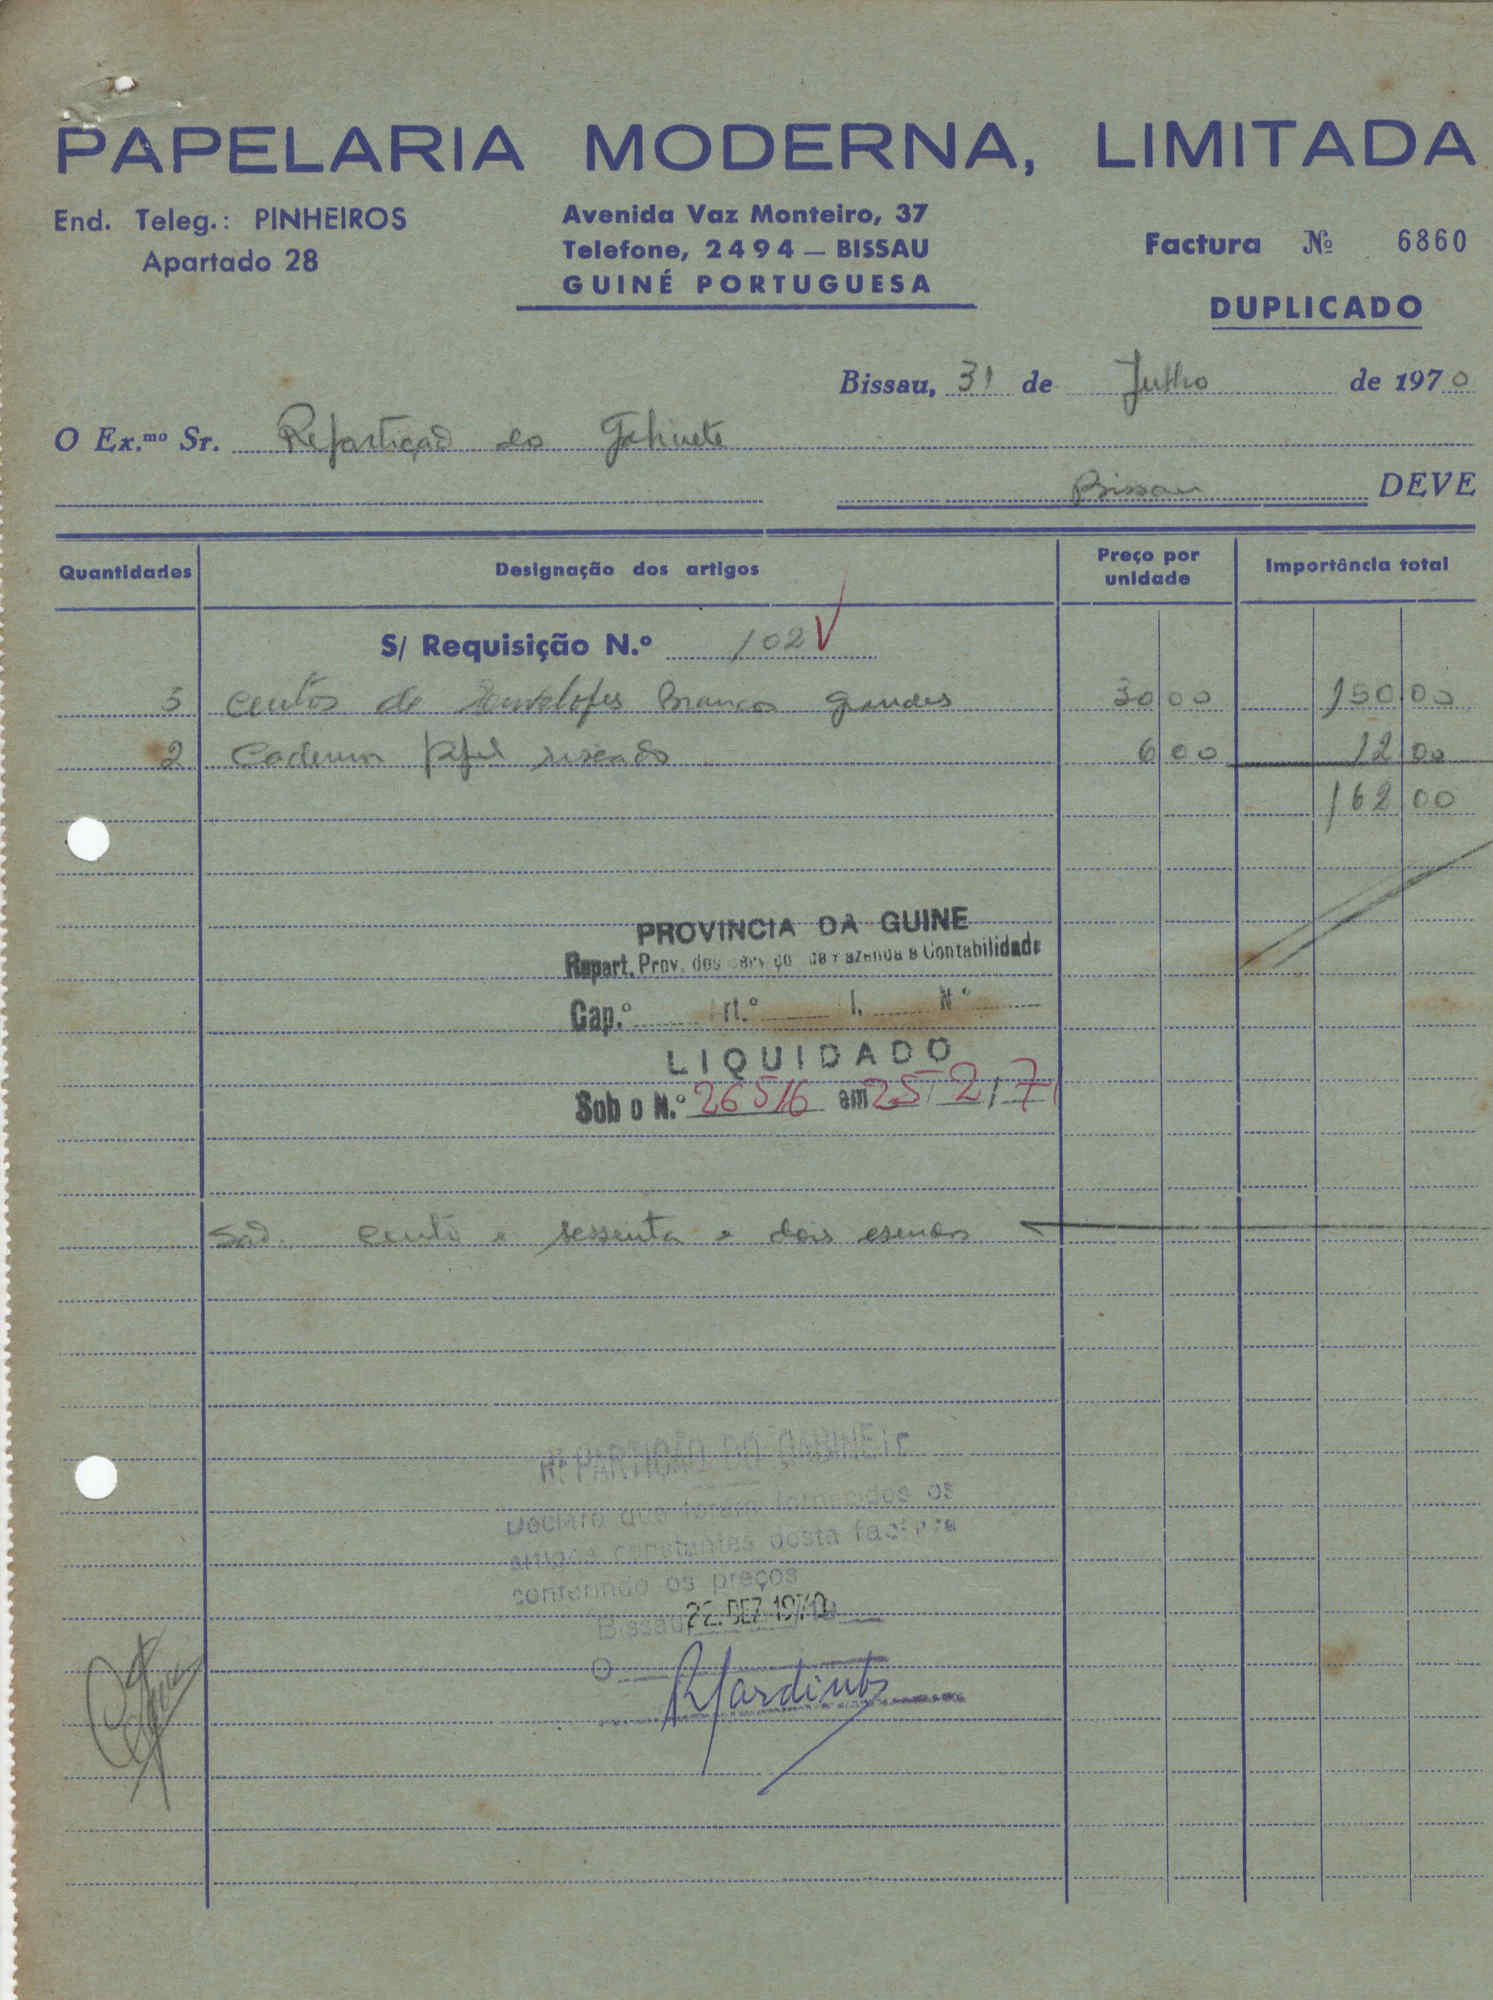 PAPELARIA MODERNA, LIMITADA
End. Teleg.: PINHEIROS
Apartado 28
Avenida Vaz Monteiro, 37
Telefone, 2494 — BISSAU
GUINÉ PORTUGUESA
Factura Nº 6860
DUPLICADO
Bissau, 31 de Julho de 1970
O Ex.mo Sr. Repartição do Gabinete
Bissau DEVE
Quantidades Designação dos artigos Preço por unidade Importância total
S/ Requisição N.º 102
5 centos de Envelopes Brancos grandes 30 00 150 00
2 Cadernos papel riscado 6 00 12 00
162 00
PROVINCIA DA GUINE
Repart. Prov. dos Serviços de Fazenda e Contabilidade
Cap.º Art.º N.º
LIQUIDADO
Sob o N.º 26516 em 25/2/71
São cento e sessenta e dois escudos
REPARTIÇÃO DO GABINETE
Declaro que foram fornecidos os
artigos constantes desta factura
conferindo os preços
Bissau, 22. DEZ 1970
O